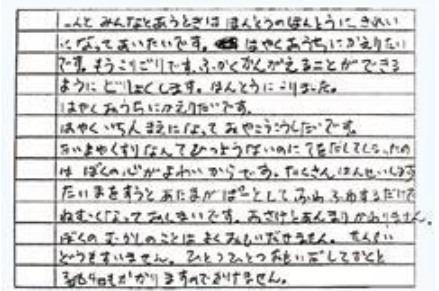 んと みんなとあうときは ほんとうのほんとうに、きれい
になってあいたいです。はやくおうちにかえりたい
です。もうこりごりです。ふかくかんがえることができる
ように どりょくします。ほんとうにこりました。
はやくおうちにかえりたいです。
はやくいちんまえになっておやこうこうしたいです。
たいまやくすりなんてひつようないのにてをだしてしまったの
は ぼくの心がよわいからです。たくさんはんせいします
たいまをすうとあたまがぱーとしてふわふわするだけで
ねむくなっておしまいです。おさけとあんまりかわりません。
ぼくの むかしのことは よくおもいだせません。
どうもすいません。ひとつひとつおもいだしてかくと
3日も4日もかかりますのでかけません。